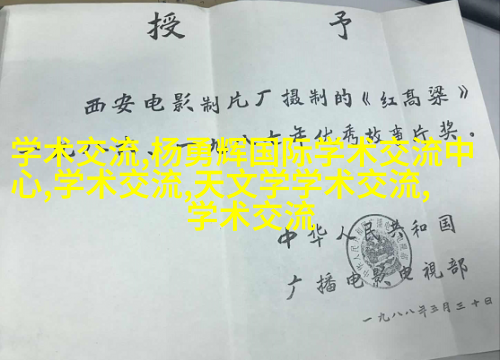 授 予
西安电影制片厂摄制的《红高粱》
一九八六、一九八七年优秀故事片奖。
学术交流,杨勇辉国际学术交流中
心,学术交流,天文学学术交流,
学术交流
中华人民共和国
广播电影电視部
一九八八年三月三十日